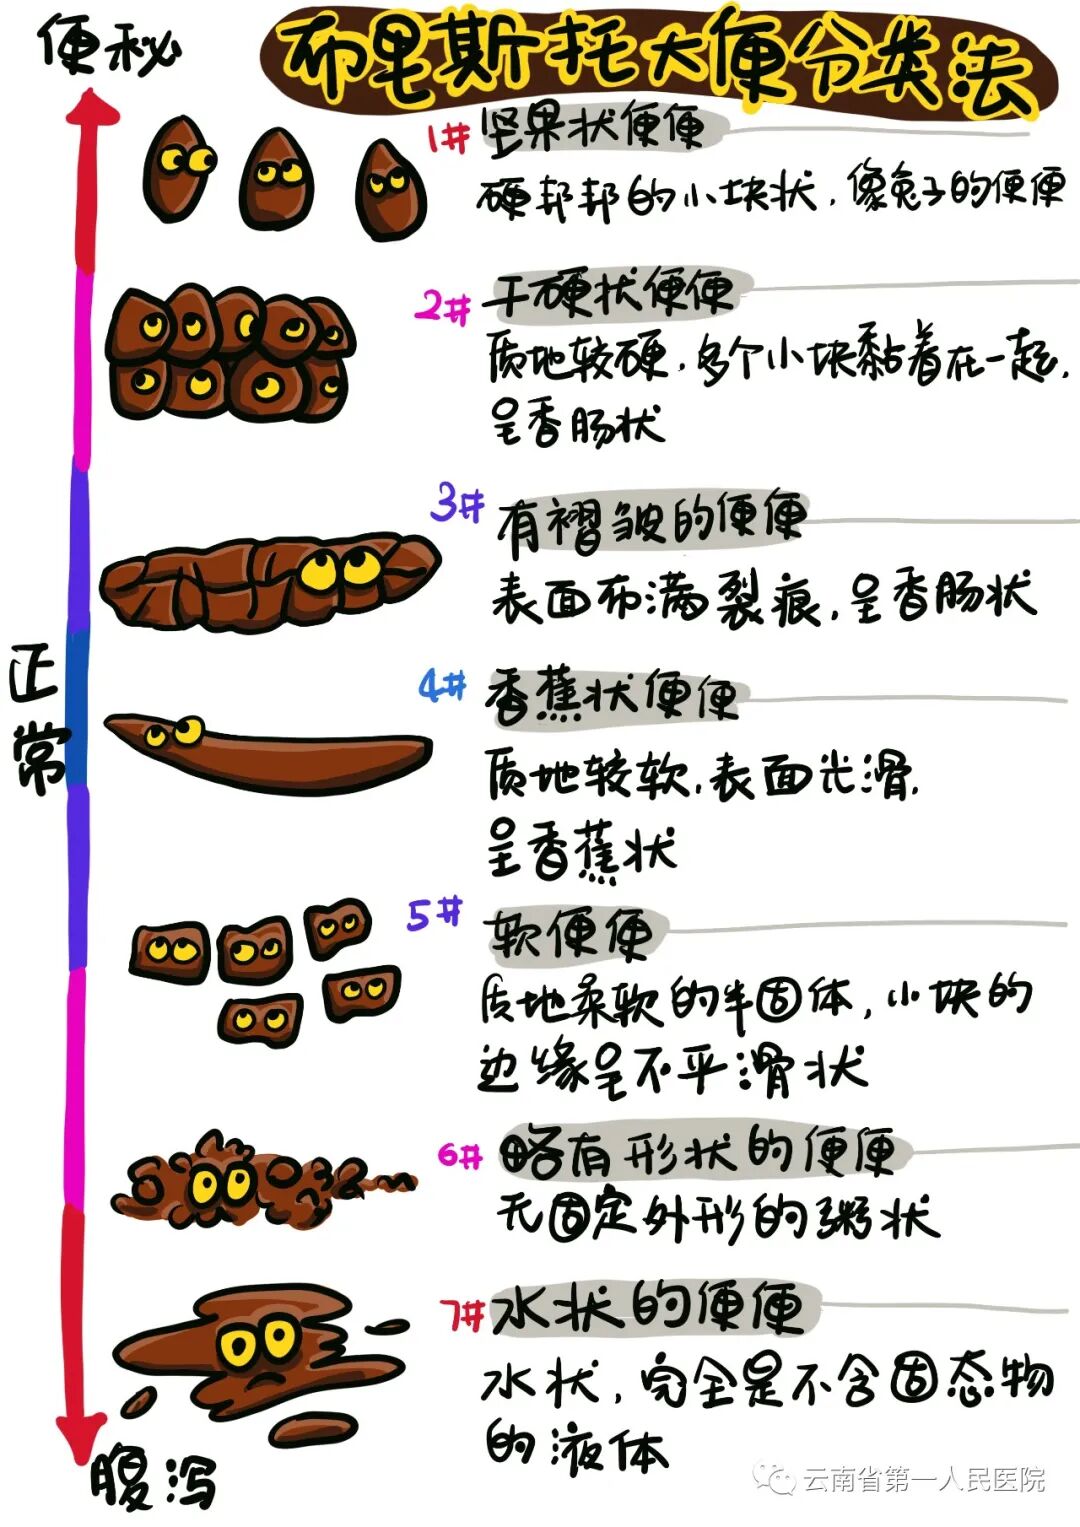 便秘
布里斯托大便分类法
1# 坚果状便便
硬邦邦的小块状，像兔子的便便
2# 干硬状便便
质地较硬，多个小块黏着在一起，
呈香肠状
3# 有褶皱的便便
表面布满裂痕，呈香肠状
正常
4# 香蕉状便便
质地较软，表面光滑，
呈香蕉状
5# 软便便
质地柔软的半固体，小块的
边缘呈不平滑状
6# 略有形状的便便
无固定外形的粥状
7# 水状的便便
水状，完全是不含固态物
的液体
腹泻
云南省第一人民医院